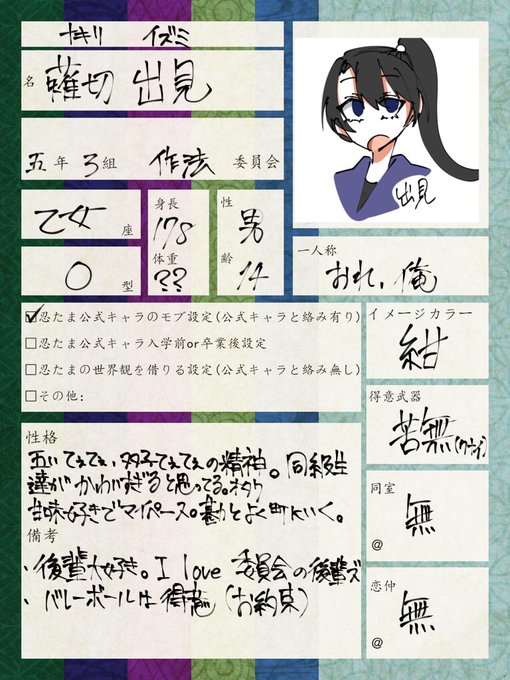 ナキリ イズミ
名 薙切 出見
五年 ろ組 作法 委員会
乙女 座
O 型
身長 178
体重 ??
性 男
齢 14
出見
一人称
おれ、俺
☑忍たま公式キャラのモブ設定(公式キャラと絡み有り)
□忍たま公式キャラ入学前or卒業後設定
□忍たまの世界観を借りる設定(公式キャラと絡み無し)
□その他:
イメージカラー
紺
得意武器
苦無(クナイ)
同室
無
@
恋仲
無
@
性格
てぇてぇ、てぇてぇの精神。同級生
達がかわいすぎると思ってる。オタク
甘味好きでマイペース。勘とよく町にいく。
備考
・後輩大好き。I love 委員会の後輩ズ
・バレーボールは得意(お約束)